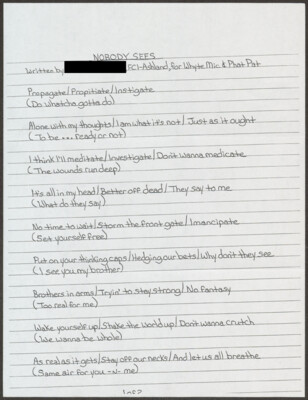 NOBODY SEES
Written by FCI-Ashland, for Whyte Mic & Phat Pat
Propagate/Propitiate/Instigate
(Do whatcha gotta do)
Alone with my thoughts/I am what it's not/Just as it ought
(To be... ready or not)
I think I'll meditate/Investigate/Don't wanna medicate
(The wounds run deep)
It's all in my head/Better off dead/They say to me
(What do they say)
No time to wait/Storm the front gate/Imancipate
(Set yourself free)
Put on your thinking caps/Hedging our bets/Why don't they see
(I see you my brother)
Brothers in arms/Tryin' to stay strong/No Fantasy
(Too real for me)
Wake yourself up/Shake the world up/Don't wanna crutch
(We wanna be whole)
As real as it gets/Stay off our necks/And let us all breathe
(Same air for you -n- me)
1 of 2